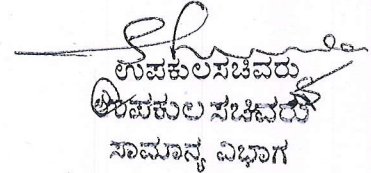 ಉಪಕುಲಸಚಿವರು
ಉಪಕುಲ ಸಚಿವರು
ಸಾಮಾನ್ಯ ವಿಭಾಗ